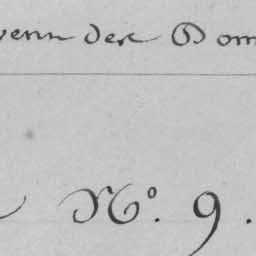 wenn der Dom
No. 9.